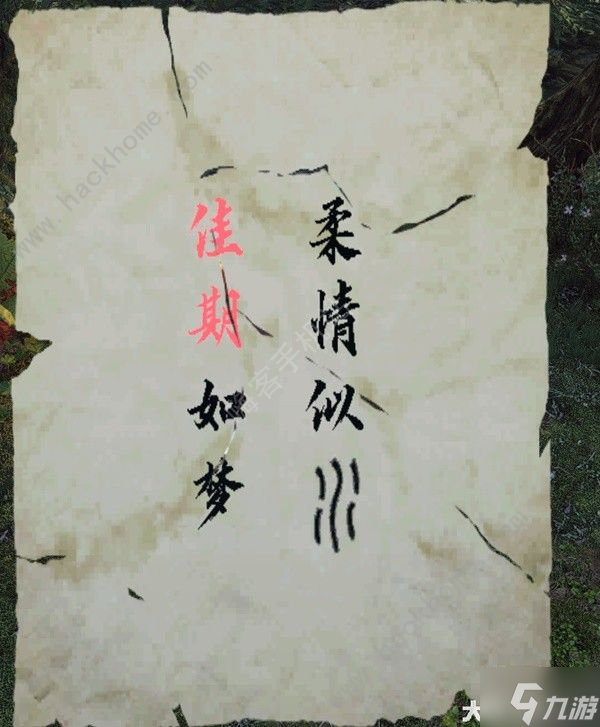 柔情似水
佳期如梦
www.hackhome.com
客手机
大
九游